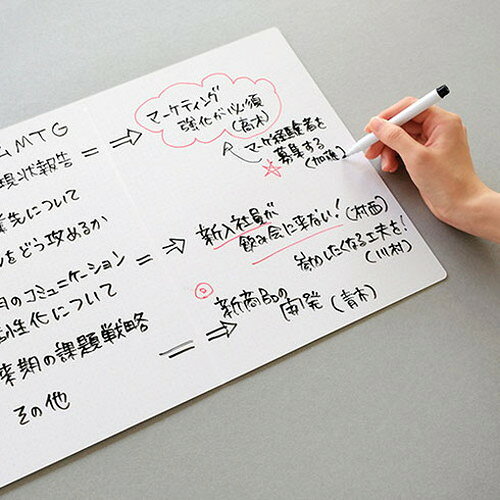 MTG
マーケティング
強化が必須
(高木)
現状報告
マーケ経験者を
募集する
(加藤)
先について
をどう攻めるか
新入社員が
飲み会に来ない! (村西)
のコミュニケーション
参加したくなる工夫を!
(川村)
性化について
新商品の
開発 (青木)
来期の課題戦略
その他